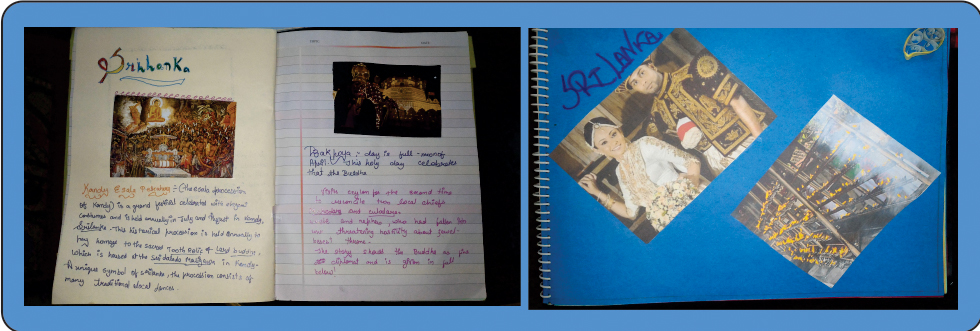 SriLanka
Kandy Esala Perahera :- (The esala procession
of Kandy) is a grand festival celebrated with elegant
costumes and is held annually in July and August in Kandy,
Srilanka. This historical procession is held annually to
pay homage to the sacred Tooth Relic of Lord buddha,
which is housed at the Sri dalada Maligawa in Kandy.
A unique symbol of srilanka, the procession consists of
many traditional local dances.
Bak poya :- day is full-moon of
April. This holy day celebrates
that the Buddha
ceylon for the second time
to reconcile two local chiefs
and
and nephew, who had fallen into
threatening hostility about
throne.
The story shows the Buddha as
diplomat and is given in full
below!
SRI LANKA